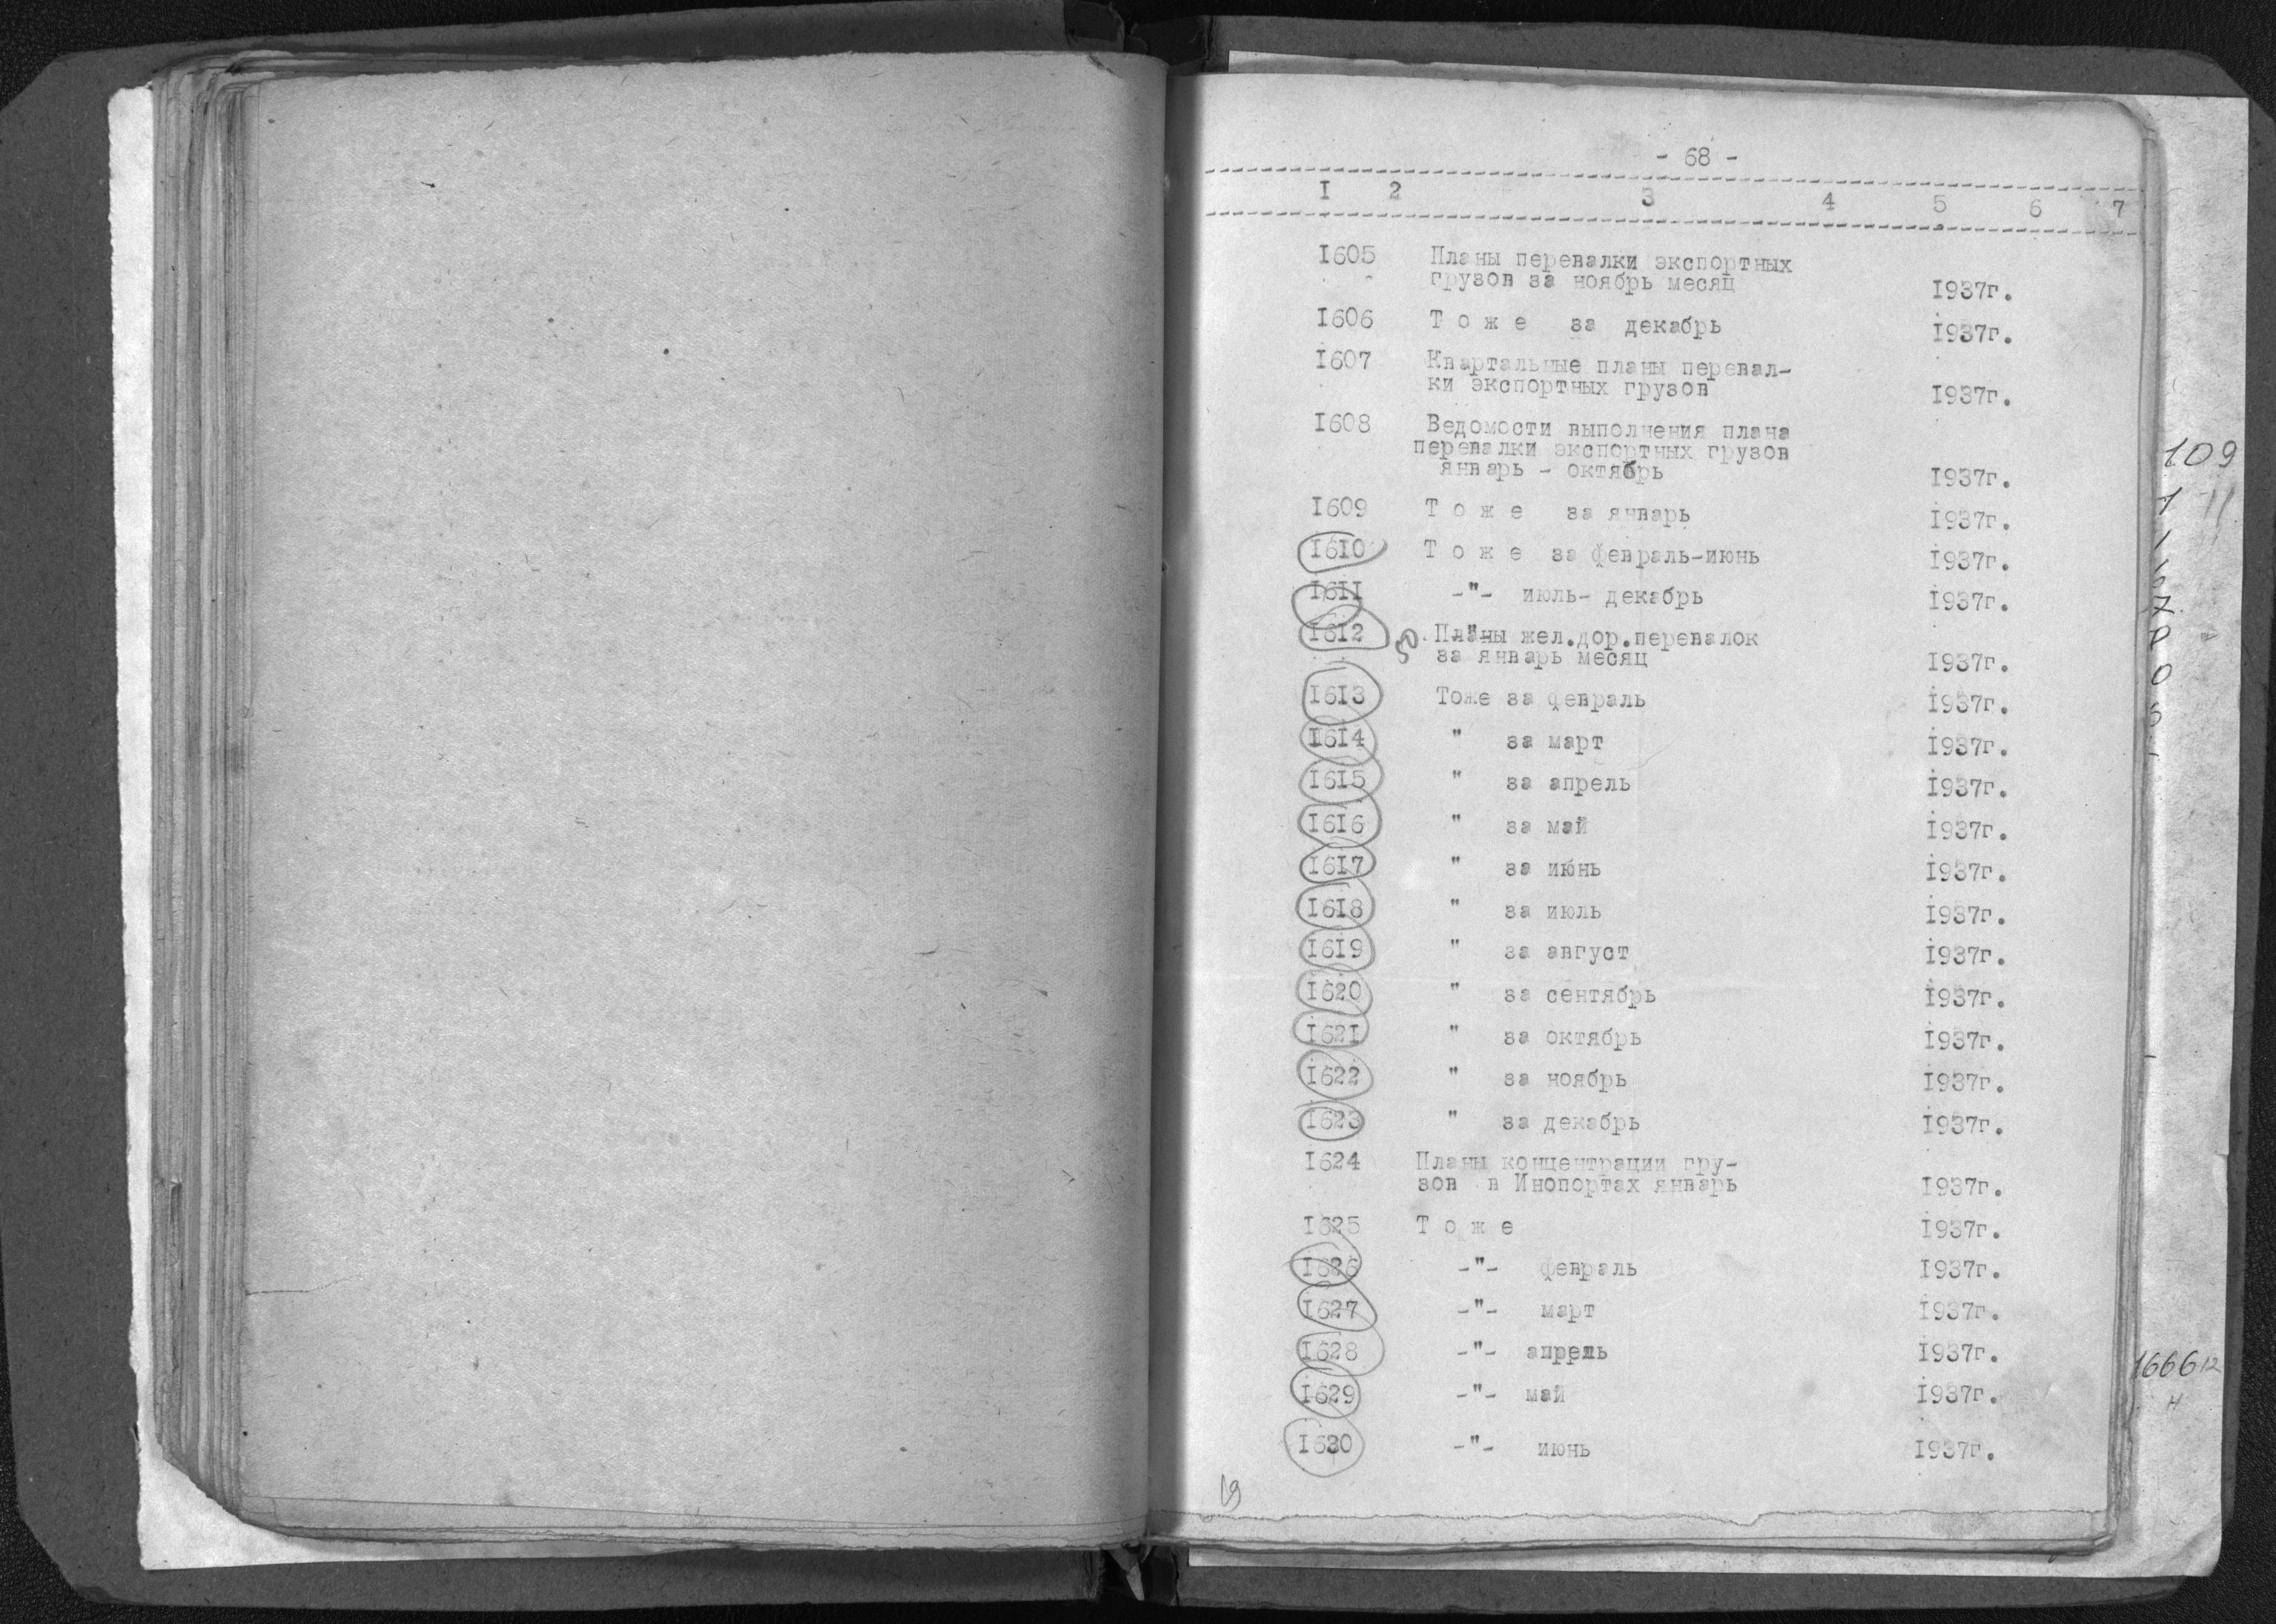 - 68 -
I 2 3 4 5 6 7
I605 Планы перевалки экспортных
грузов за ноябрь месяц I937г.
I606 Т о ж е за декабрь I937г.
I607 Квартальные планы перевал-
ки экспортных грузов I937г.
I608 Ведомости выполнения плана
перевалки экспортных грузов
январь - октябрь I937г.
I609 Т о ж е за январь I937г.
I6I0 Т о ж е за февраль-июнь I937г.
I6II -"- июль- декабрь I937г.
I6I2 Планы жел.дор.перевалок
за январь месяц I937г.
I6I3 Тоже за февраль I937г.
I6I4 " за март I937г.
I6I5 " за апрель I937г.
I6I6 " за май I937г.
I6I7 " за июнь I937г.
I6I8 " за июль I937г.
I6I9 " за август I937г.
I620 " за сентябрь I937г.
I62I " за октябрь I937г.
I622 " за ноябрь I937г.
I623 " за декабрь I937г.
I624 Планы концентрации гру-
зов в Инопортах январь I937г.
I625 Т о ж е I937г.
I626 -"- февраль I937г.
I627 -"- март I937г.
I628 -"- апрель I937г.
I629 -"- май I937г.
I630 -"- июнь I937г.
19
109
166612